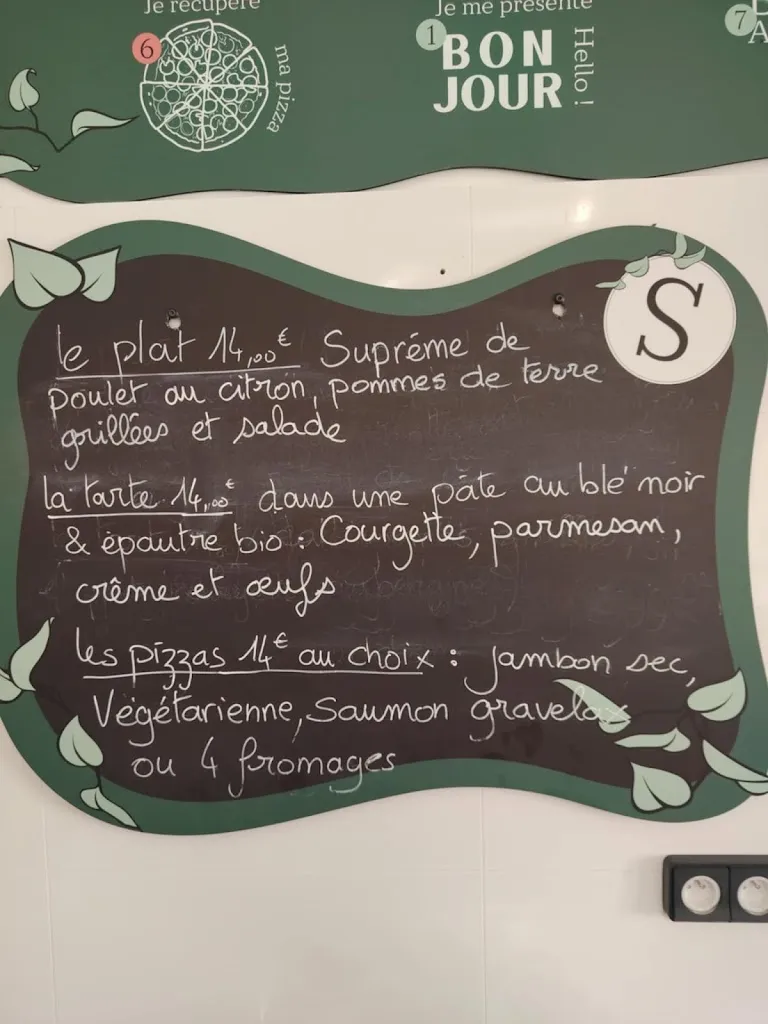 Je récupère
6
ma pizza
Je me présente
1
BON
JOUR
Hello !
7
S
le plat 14,00€ Supréme de
poulet au citron, pommes de terre
grillées et salade
la tarte 14,00€ dans une pâte au blé noir
& épautre bio : Courgette, parmesan,
crême et œufs
les pizzas 14€ au choix : jambon sec,
Végétarienne, Saumon gravelax
ou 4 fromages